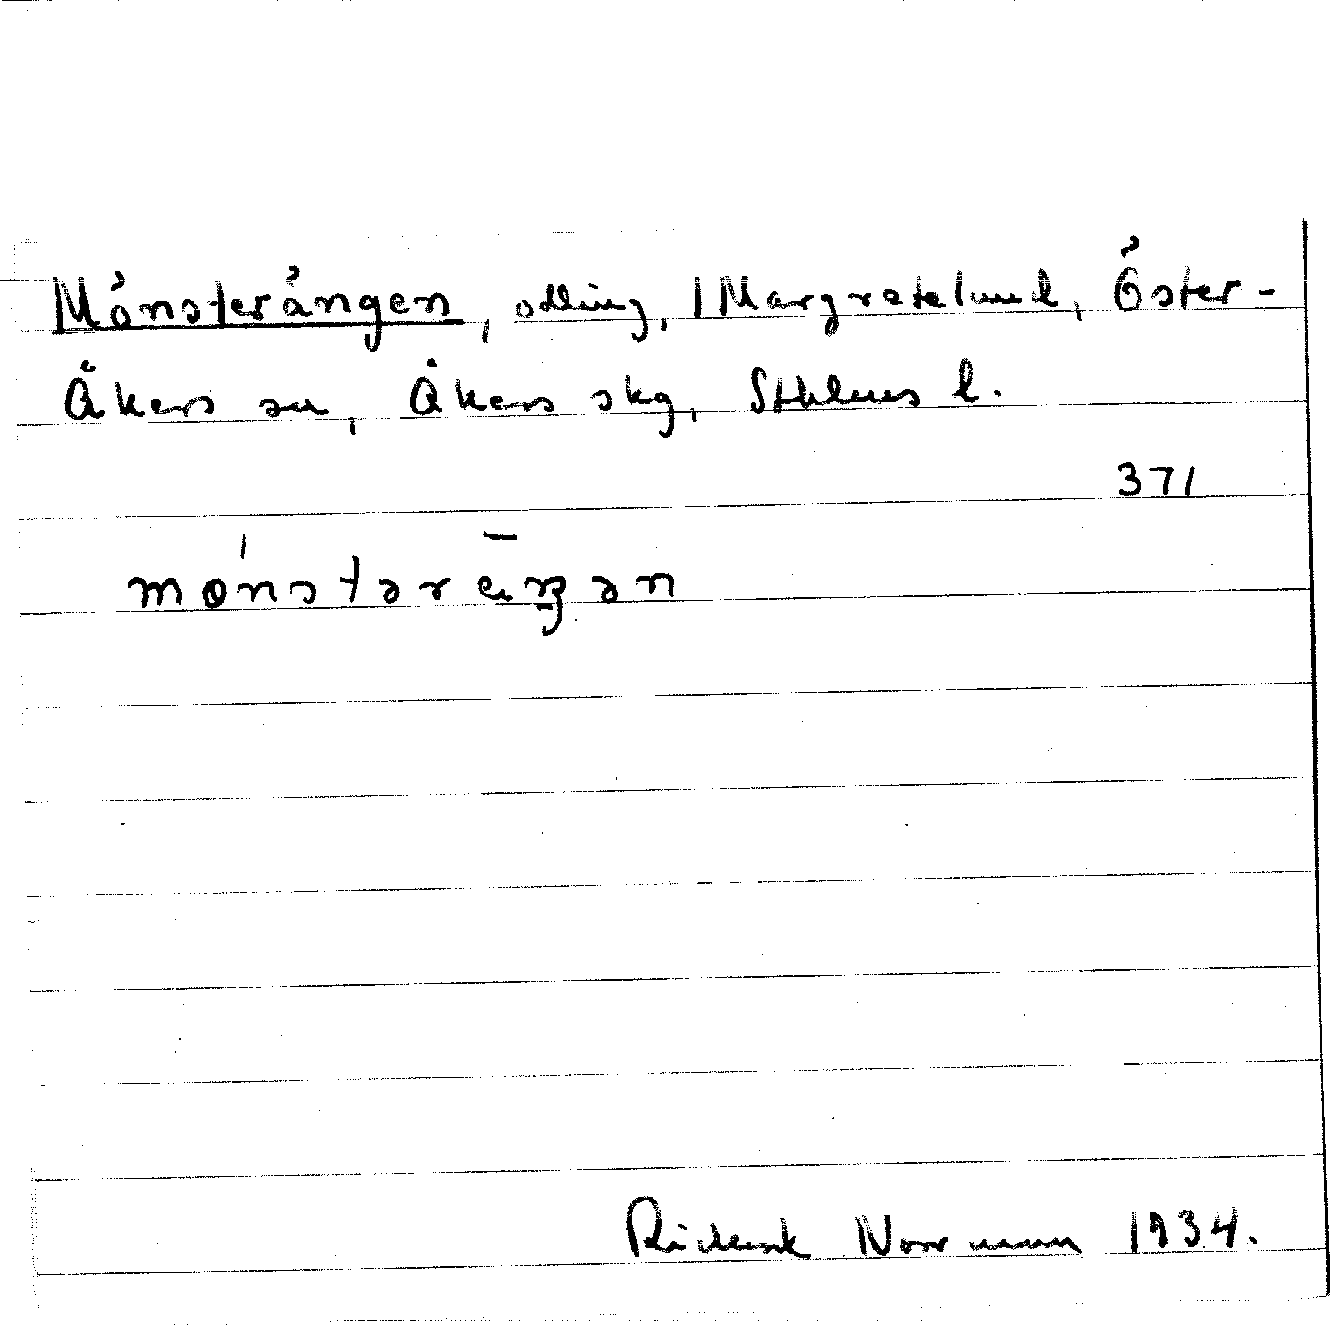 Mönsterängen, odling, Margretelund, Öster-
Åkers sn, Åkers skg, Sthlms l.
371
mønstərɛŋən
Norrman 1934.